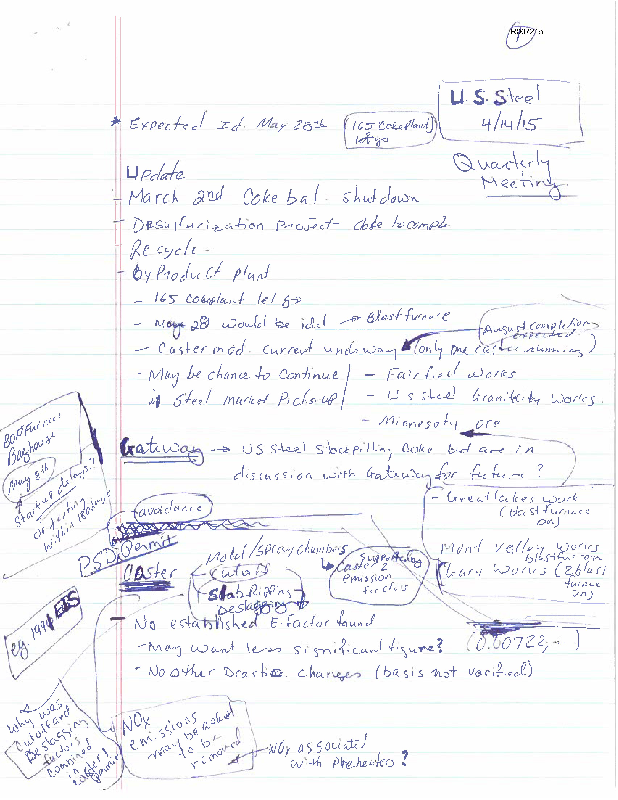 1
U.S. Steel
4/14/15
* Expected Id. May 28th
165 Coke Plant
let go
Quarterly
Meeting
Update
- March 2nd Coke bat. shutdown
- Desulfurization Project - close to comple
- Recycle -
- by Product Plant
- 165 Cokeplant let go
- May 28 would be idel → Blast furnace
August completion
expected
- Caster mod. current underway (only one caster running)
- May be chance to Continue
if Steel Market Picks-up
- Fairfield works
- U S Steel Granite City Works.
- Minnesota ore
Blast Furnace
Baghouse
May 8th
Startup delays?
or testing
within deadline
Gateway → US Steel Stockpilling Coke but are in
discussion with Gateway for future?
- Great lakes work
(blast furnace
on)
Mond valley works
blast fur. on
Gary Works (2 blast
furnace
on)
avoidance
PSD Permit
Caster
Mold/Spray chambers
- Cutoff
- Slab Ripping
Deslagging
Supporting
Caster 2
emission
factors
- No established E. factor found
(0.00722, - )
- May want less significant figure?
- No other Drastic changes (basis not varified)
eg. 1979 EIS
Why was
Cutoff and
Deslagging
factors
combined
in
caster
permit
NOx
emissions
may be asked
to be
removed
NOx associated
with preheaters?